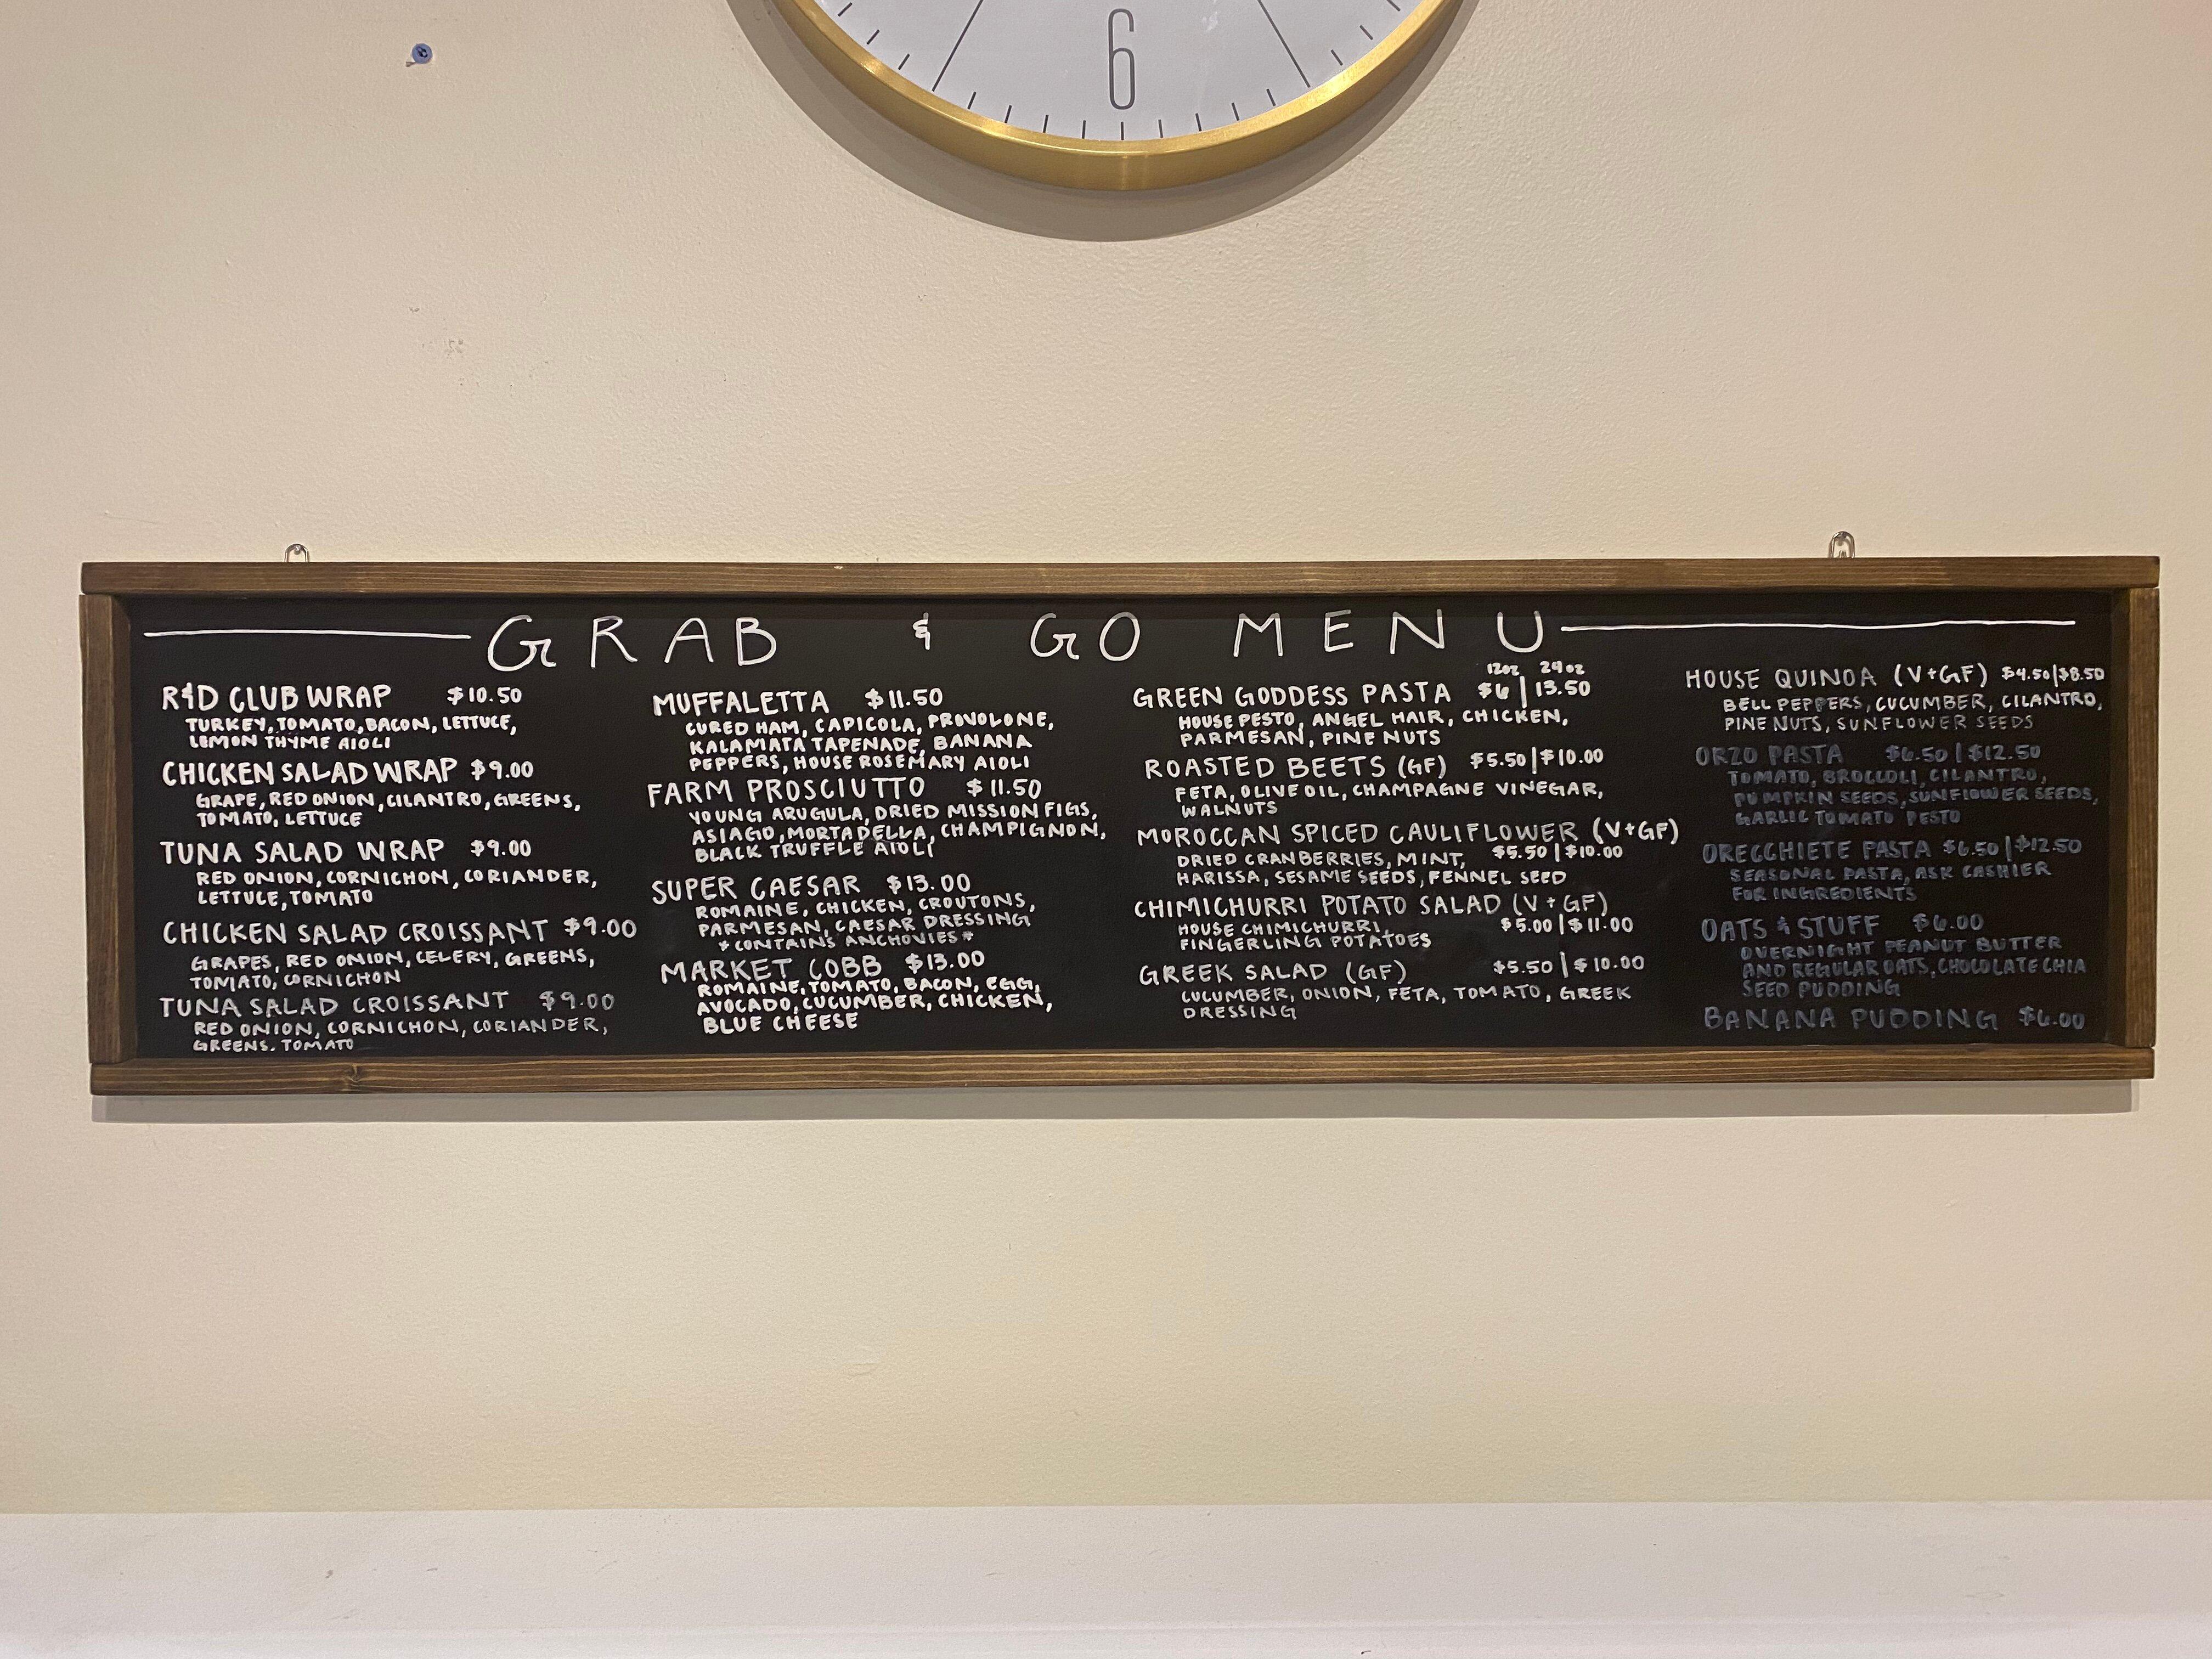 6
GRAB & GO MENU
R&D CLUB WRAP $10.50
TURKEY, TOMATO, BACON, LETTUCE,
LEMON THYME AIOLI
CHICKEN SALAD WRAP $9.00
GRAPE, RED ONION, CILANTRO, GREENS,
TOMATO, LETTUCE
TUNA SALAD WRAP $9.00
RED ONION, CORNICHON, CORIANDER,
LETTUCE, TOMATO
CHICKEN SALAD CROISSANT $9.00
GRAPES, RED ONION, CELERY, GREENS,
TOMATO, CORNICHON
TUNA SALAD CROISSANT $9.00
RED ONION, CORNICHON, CORIANDER,
GREENS, TOMATO
MUFFALETTA $11.50
CURED HAM, CAPICOLA, PROVOLONE,
KALAMATA TAPENADE, BANANA
PEPPERS, HOUSE ROSEMARY AIOLI
FARM PROSCIUTTO $11.50
YOUNG ARUGULA, DRIED MISSION FIGS,
ASIAGO, MORTADELLA, CHAMPIGNON,
BLACK TRUFFLE AIOLI
SUPER CAESAR $13.00
ROMAINE, CHICKEN, CROUTONS,
PARMESAN, CAESAR DRESSING
*CONTAINS ANCHOVIES*
MARKET COBB $13.00
ROMAINE, TOMATO, BACON, EGG,
AVOCADO, CUCUMBER, CHICKEN,
BLUE CHEESE
12oz 24oz
GREEN GODDESS PASTA $6 | 13.50
HOUSE PESTO, ANGEL HAIR, CHICKEN,
PARMESAN, PINE NUTS
ROASTED BEETS (GF) $5.50 | $10.00
FETA, OLIVE OIL, CHAMPAGNE VINEGAR,
WALNUTS
MOROCCAN SPICED CAULIFLOWER (V+GF)
DRIED CRANBERRIES, MINT, $5.50 | $10.00
HARISSA, SESAME SEEDS, FENNEL SEED
CHIMICHURRI POTATO SALAD (V+GF)
HOUSE CHIMICHURRI, $5.00 | $11.00
FINGERLING POTATOES
GREEK SALAD (GF) $5.50 | $10.00
CUCUMBER, ONION, FETA, TOMATO, GREEK
DRESSING
HOUSE QUINOA (V+GF) $4.50 | $8.50
BELL PEPPERS, CUCUMBER, CILANTRO,
PINE NUTS, SUNFLOWER SEEDS
ORZO PASTA $6.50 | $12.50
TOMATO, BROCCOLI, CILANTRO,
PUMPKIN SEEDS, SUNFLOWER SEEDS,
GARLIC TOMATO PESTO
ORECCHIETE PASTA $6.50 | $12.50
SEASONAL PASTA, ASK CASHIER
FOR INGREDIENTS
OATS & STUFF $6.00
OVERNIGHT PEANUT BUTTER
AND REGULAR OATS, CHOCOLATE CHIA
SEED PUDDING
BANANA PUDDING $6.00